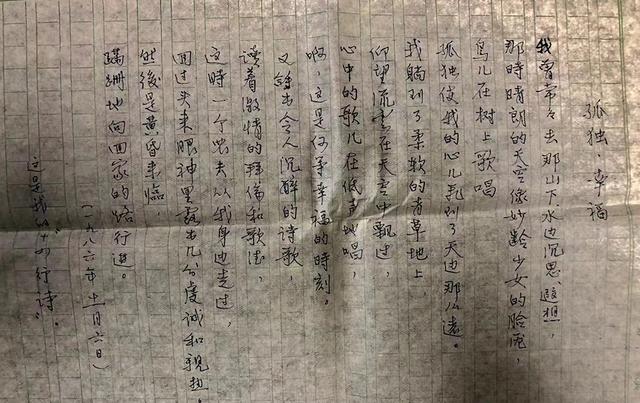 孤独·幸福
我曾常々去那山下、水边沉思、遐想，
那時晴朗的天空像妙齡少女的脸庞，
鸟儿在树上歌唱
孤独使我的心儿飛到了天边那么遠。
我躺到了柔软的青草地上，
仰望流云在天空中飘过，
心中的歌儿在低声地唱，
啊，这是何等幸福的時刻。
又
令人沉醉的诗歌
读着激情的拜倫和歌德，
这時一个
从我身边走过，
回过头来眼神里露出几分虔诚和親热。
然後是黄昏来臨，
蹒跚地向回家的路行进。
（一九八六年十一月六日）
这是我的十四行诗。